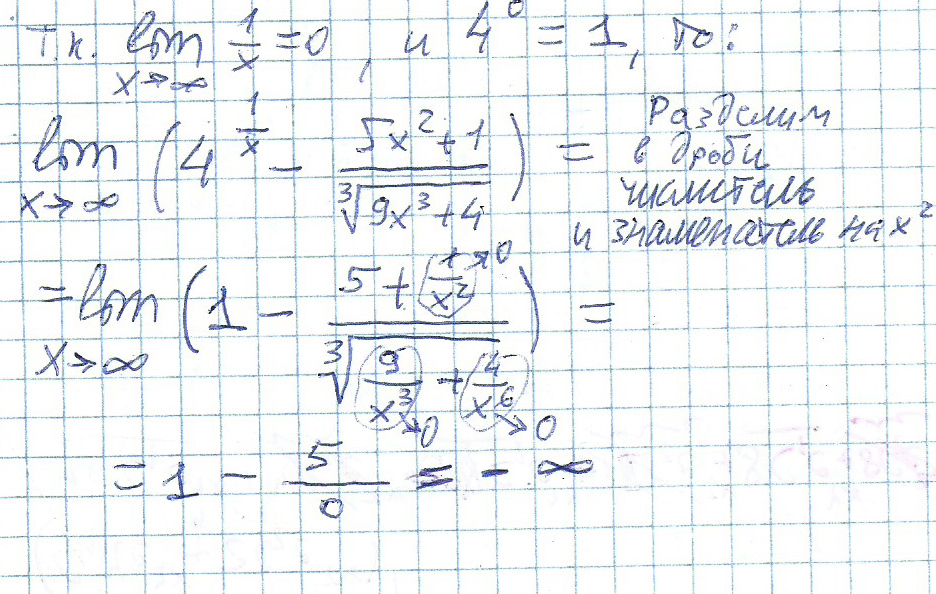 т.к. lim 1/x = 0, и 4^0 = 1, то:
x→∞
lim (4^(1/x) − (5x²+1)/∛(9x³+4)) =
x→∞
Разделим
в дроби
числитель
и знаменатель на x²
= lim (1 − (5 + (1/x²)→0)/∛((9/x³)→0 + (4/x⁶)→0)) =
x→∞
= 1 − 5/0 = − ∞